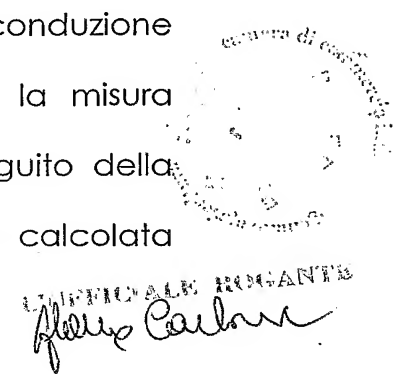 conduzione
la misura
guito della
calcolata
camera di commercio
UFFICIALE ROGANTE